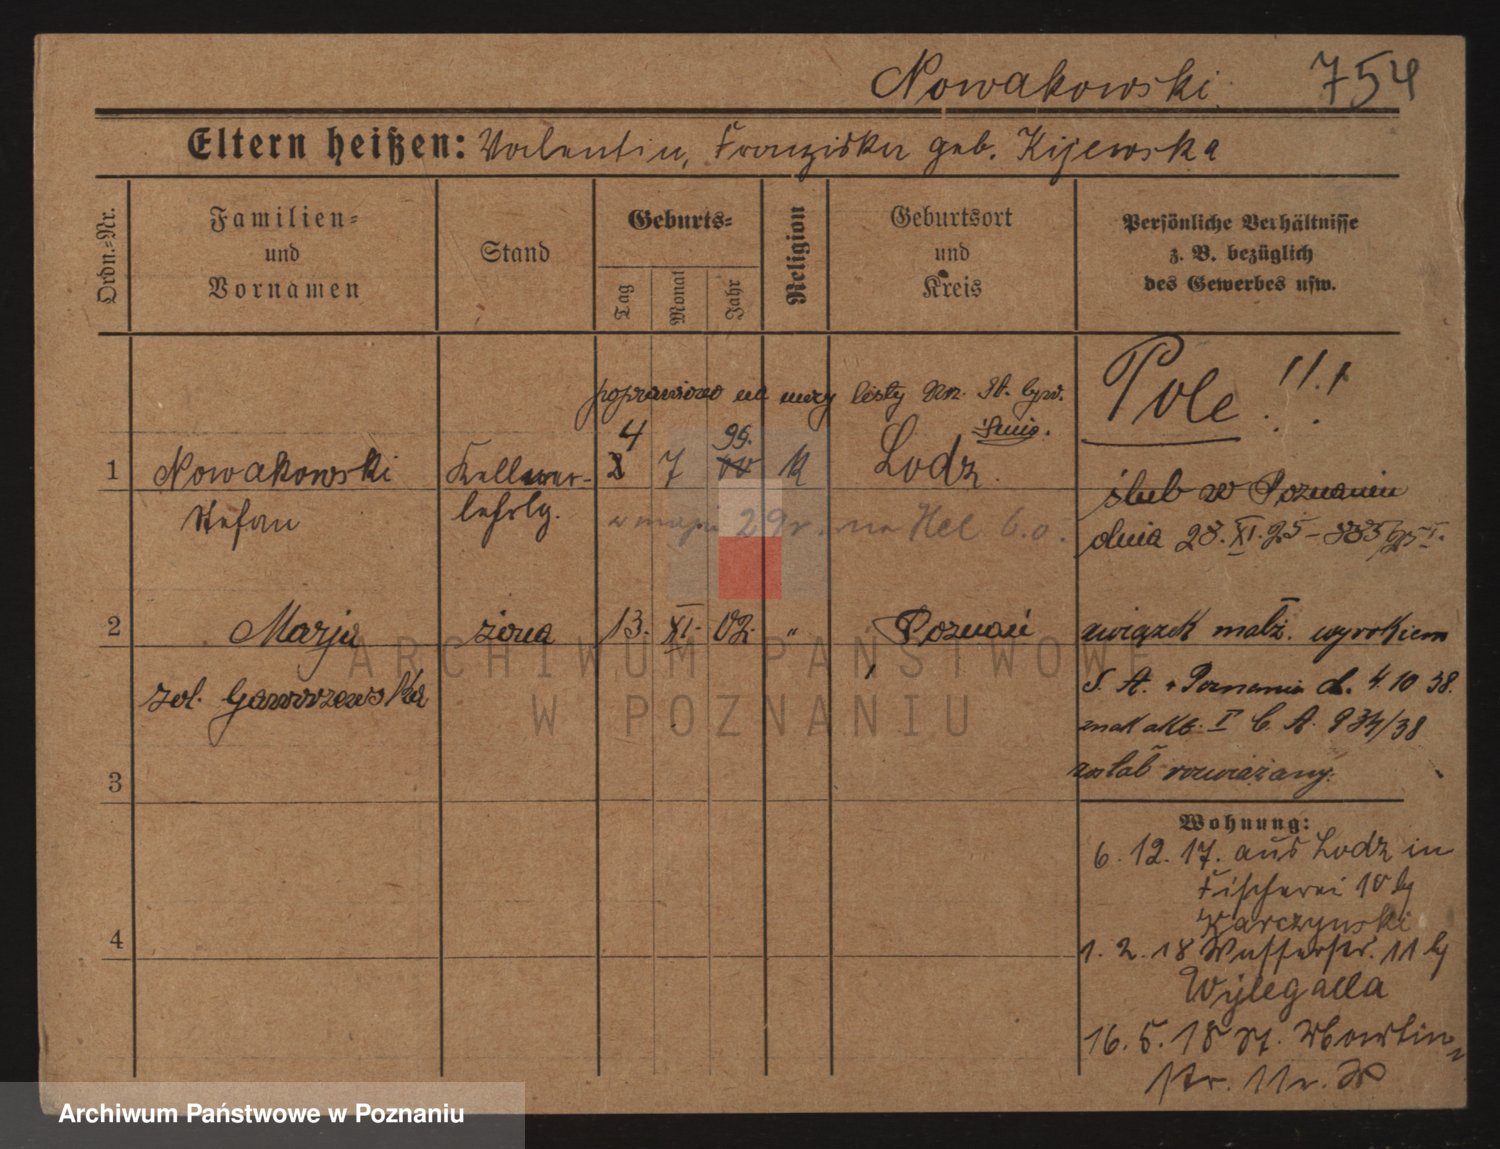 Nowakowski. 754
Eltern heißen: Valentin, Franziska geb. Kijewska
Ordn.=Nr.
Familien=
und
Vornamen
Stand
Geburts=
Tag
Monat
Jahr
Religion
Geburtsort
und
Kreis
Persönliche Verhältnisse
z. B. bezüglich
des Gewerbes usw.
poprawiono na mocy listy
Pole !!!
4 99.
1 Nowakowski Kellner- 2 7 00 K Lodz.
Stefan lehrlg.
w maju 29 r. na Hel
ślub w Poznaniu
dnia 28. XI. 25 –
2 Marja żona 13. XI. 02. " Poznań
związek małż. wyrokiem
S. A. w Poznaniu d. 4. 10 38.
znak akt. I C. A. 934/38
został rozwiązany.
3
4
Wohnung:
6. 12. 17. aus Lodz in
Fischerei 10 bj
Karczynski
1. 2. 18 Wasserstr. 11 bj
Wylegalla
16. 5. 18 St. Martin=
str. 11
ARCHIWUM PAŃSTWOWE
W POZNANIU
Archiwum Państwowe w Poznaniu